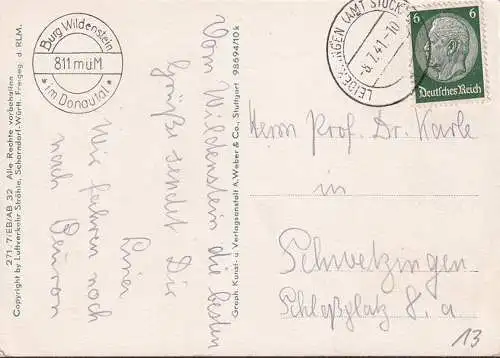 Burg Wildenstein
811 müM
im Donautal
LEIDRINGEN (AMT STOCK
-8.7.41.-10
6 6
Deutsches Reich
271-7/EB/AB 32 Alle Rechte vorbehalten
Copyright by Luftverkehr Strähle, Schorndorf-Württ. Freigeg. d. RLM.
Vom Wildenstein die besten
Grüße sendet Dir
Wir fahren noch
nach Beuron
Graph. Kunst- u. Verlagsanstalt A. Weber & Co., Stuttgart 98694/10k
Herrn Prof. Dr. Karle
in
Schwetzingen
Schloßplatz 8. a
13